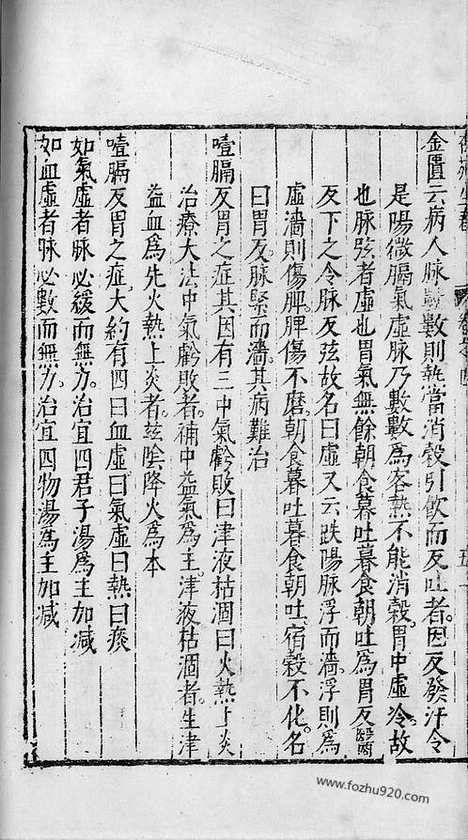 金匱云病人脉數數則熱當消穀引飲而反吐者因反發汗令
是陽微膈氣虛脉乃數數為客熱不能消穀胃中虛冷故
也脉弦者虛也胃氣無餘朝食暮吐暮食朝吐為胃反
反下之令脉反弦故名曰虛又云趺陽脉浮而濇浮則為
虛濇則傷脾脾傷不磨朝食暮吐暮食朝吐宿穀不化名
曰胃反脉緊而濇其病難治
噎膈反胃之症其因有三中氣虧敗曰津液枯涸曰火熱上炎
治療大法中氣虧敗者補中益氣為主津液枯涸者生津
益血為先火熱上炎者玆陰降火為本
噎膈反胃之症大約有四曰血虛曰氣虛曰熱曰痰
如氣虛者脉必緩而無力治宜四君子湯為主加減
如血虛者脉必數而無力治宜四物湯為主加減
www.fozhu920.com